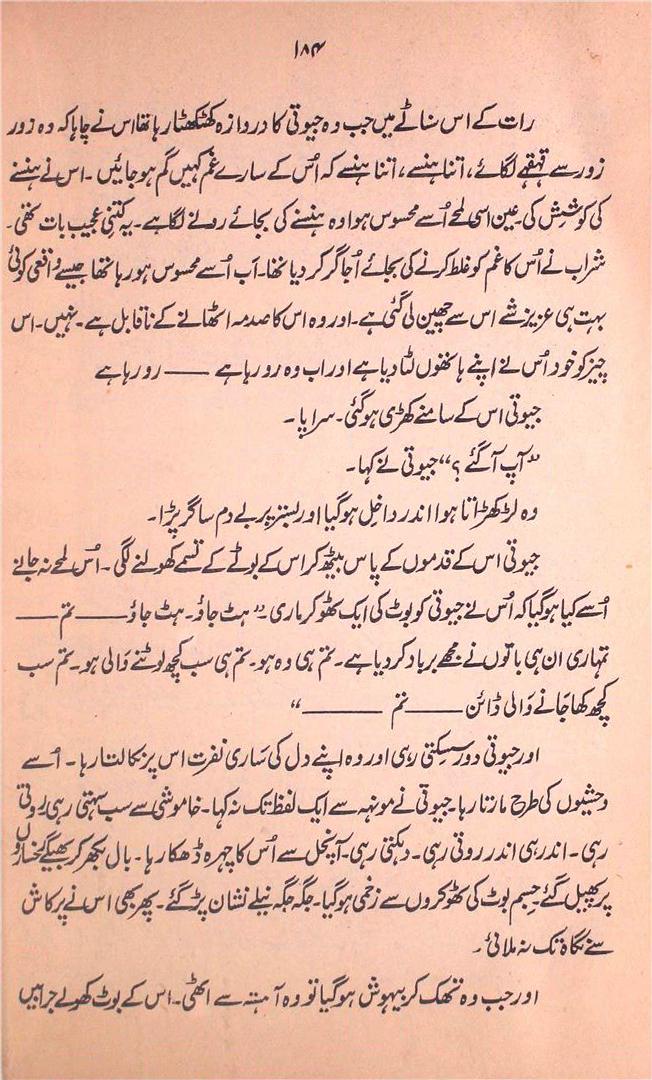 ۱۸۴
رات کے اس سناٹے میں جب وہ جیوتی کا دروازہ کھٹکھٹا رہا تھا اس نے چاہا کہ وہ زور
زور سے قہقہے لگائے، اتنا ہنسے، اتنا ہنسے کہ اُس کے سارے غم کہیں گم ہو جائیں۔ اس نے ہنسنے
کی کوشش کی۔ عین اسی لمحے اُسے محسوس ہوا وہ ہنسنے کی بجائے رونے لگا ہے۔ یہ کتنی عجیب بات تھی۔
شراب نے اُس کا غم کو غلط کرنے کی بجائے اُجاگر کر دیا تھا۔ اَب اُسے محسوس ہو رہا تھا جیسے واقعی کوئی
بہت ہی عزیز شے اس سے چھین لی گئی ہے۔ اور وہ اس کا صدمہ اٹھانے کے ناقابل ہے۔ نہیں۔ اس
چیز کو خود اُس نے اپنے ہاتھوں لٹا دیا ہے اور اب وہ رو رہا ہے —— رو رہا ہے
جیوتی اس کے سامنے کھڑی ہو گئی۔ سراپا۔
”آپ آ گئے؟“ جیوتی نے کہا۔
وہ لڑکھڑاتا ہوا اندر داخل ہو گیا اور بستر پر بے دم سا گر پڑا۔
جیوتی اس کے قدموں کے پاس بیٹھ کر اس کے بوٹ کے تسمے کھولنے لگی۔ اُس لمحے نہ جانے
اُسے کیا ہو گیا کہ اُس نے جیوتی کو بوٹ کی ایک ٹھوکر ماری۔ ”ہٹ جاؤ۔ ہٹ جاؤ —— تم ——
تمہاری ان ہی باتوں نے مجھے برباد کر دیا ہے۔ تم ہی وہ ہو۔ تم ہی سب کچھ لوٹنے والی ہو۔ تم سب
کچھ کھا جانے والی ڈائن —— تم ———“
اور جیوتی دور سسکتی رہی اور وہ اپنے دل کی ساری نفرت اس پر نکالتا رہا۔ اُسے
وحشیوں کی طرح مارتا رہا۔ جیوتی نے مونہہ سے ایک لفظ تک نہ کہا۔ خاموشی سے سب سہتی رہی روتی
رہی۔ اندر ہی اندر روتی رہی۔ دکھتی رہی۔ آنچل سے اُس کا چہرہ ڈھکا رہا۔ بال بکھر کر بھیگے رخساروں
پر پھیل گئے۔ جسم بوٹ کی ٹھوکروں سے زخمی ہو گیا۔ جگہ جگہ نیلے نشان پڑ گئے۔ پھر بھی اس نے پرکاش
سے نگاہ تک نہ ملائی۔
اور جب وہ تھک کر بیہوش ہو گیا تو وہ آہستہ سے اٹھی۔ اس کے بوٹ کھولے جرابیں